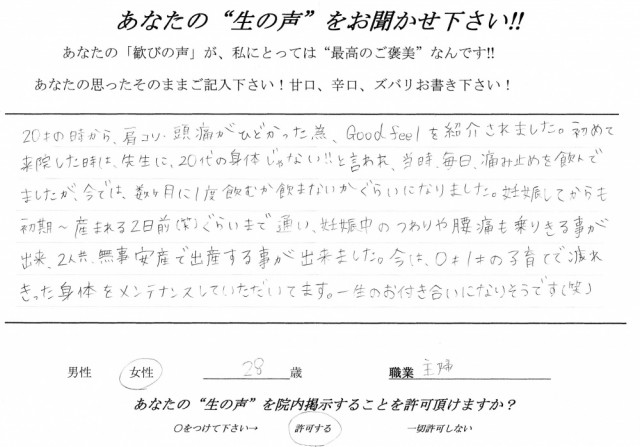 あなたの“生の声”をお聞かせ下さい!!
あなたの「歓びの声」が、私にとっては“最高のご褒美”なんです!!
あなたの思ったそのままご記入下さい！甘口、辛口、ズバリお書き下さい！
20才の時から、肩コリ・頭痛がひどかった為、Good feelを紹介されました。初めて
来院した時は、先生に、20代の身体じゃない!!と言われ、当時、毎日、痛み止めを飲んで
ましたが、今では、数ヶ月に1度飲むか飲まないかぐらいになりました。妊娠してからも
初期～産まれる2日前(笑)ぐらいまで通い、妊娠中のつわりや腰痛も乗りきる事が
出来、2人共、無事安産で出産する事が出来ました。今は、0才1才の子育てで疲れ
きった身体をメンテナンスしていただいてます。一生のお付き合いになりそうです(笑)
男性 女性 28歳 職業 主婦
あなたの“生の声”を院内掲示することを許可頂けますか？
○をつけて下さい→ 許可する 一切許可しない